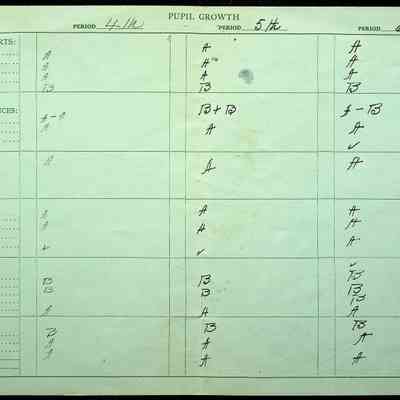 PUPIL GROWTH
PERIOD 4th PERIOD 5th PERIOD
RTS: A A
A A A
A A A
A
B B B
ICES: B+ B - B
A A A
✓
A A A
A A A
A A A
A
✓ ✓
✓
B B B
B B B
B
A A A
B B B
A A A
A A A